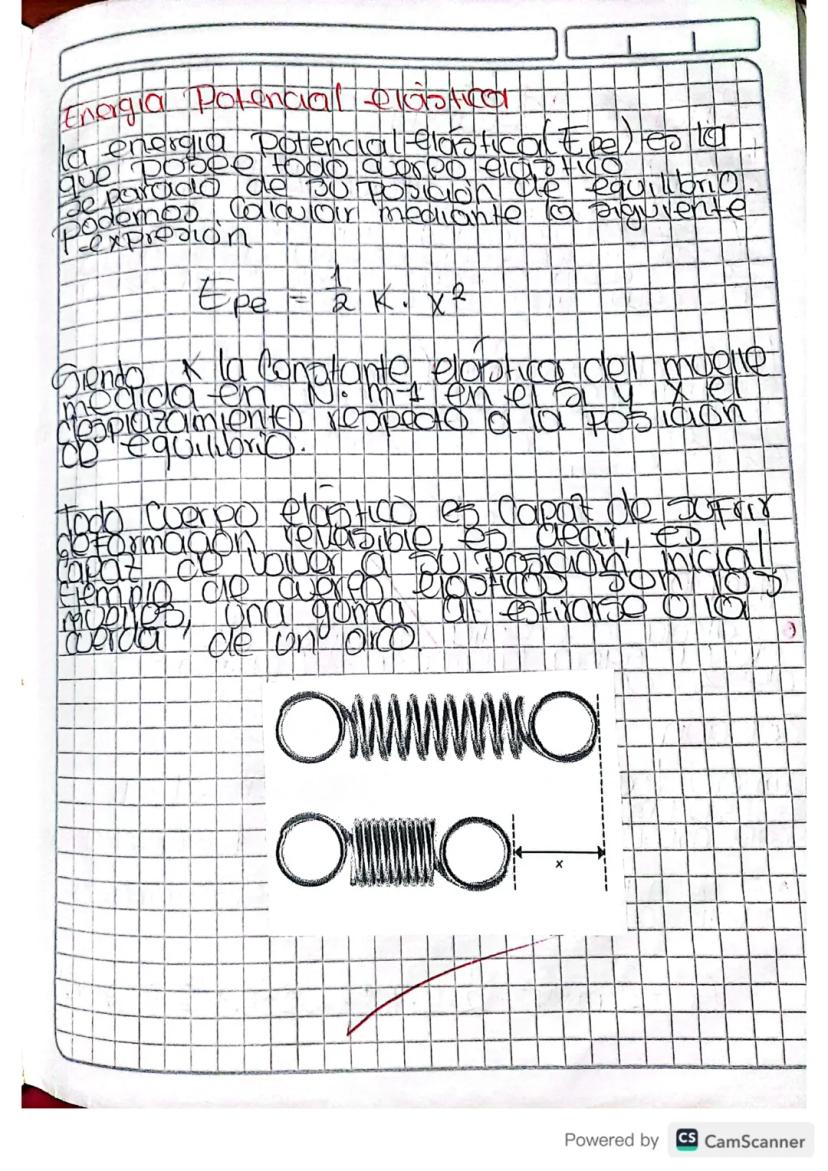 Energia Potencial elástica
la energia potencial elástica (Epe) es la
que posee todo cuerpo elástico
separado de su posición de equilibrio.
Podemos Calcular mediante la siguiente
expresión
Epe = 1/2 K . x²
Siendo K la Constante elástica del muelle
medida en N. m-1 en el SI y x el
desplazamiento respecto a la Posición
de equilibrio.
todo cuerpo elástico es Capaz de sufrir
deformación revesible, es decir, es
capaz de volver a su posición inicial
Ejemplo de cuerpo elasticos son los
muelles, una goma al estirarse o la
cuerda de un arco.
x
Powered by CS CamScanner